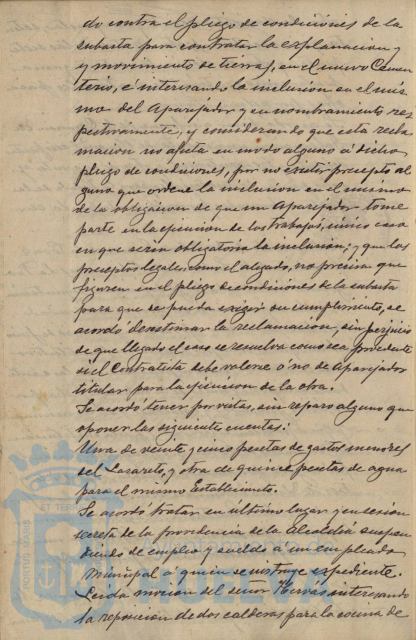 do contra el pliego de condiciones de la
subasta para contratar la explanacion y
y movimiento de tierras, en el nuevo Cemen-
terio, é interesando la inclusion en el mis
mo del Aparejador y su nombramiento res
pectivamente, y considerando que esta recla
macion no afecta en modo alguno á dicho
pliego de condiciones, por no existir precepto al
guno que ordene la inclusion en el mismo
de la obligacion de que un Aparejador tome
parte en la ejecucion de los trabajos, único caso
en que seria obligatoria la inclusion; y que los
preceptos legales, como el alegado, no precisa que
figuren en el pliego de condiciones de la subasta
para que se pueda exigir su cumplimiento, se
acordó desestimar la reclamacion, sin perjuicio
de que llegado el caso se resuelva como sea procedente
si el Contratista debe valerse ó no de Aparejador
titular para la ejecucion de la obra.
Se acordó tener por vistas, sin reparo alguno que
oponer las siguientes cuentas:
Una de veinte y cinco pesetas de gastos menores
del Lazareto, y otra de quince pesetas de agua
para el mismo Establecimto.
Se acordó tratar en último lugar y en sesion
secreta de la providencia de la Alcaldía suspen
diendo de empleo y sueldo á un empleado
Municipal á quien se instruye expediente.
Leida mocion del señor Hervás interesando
la reposicion de dos calderas para la cocina de